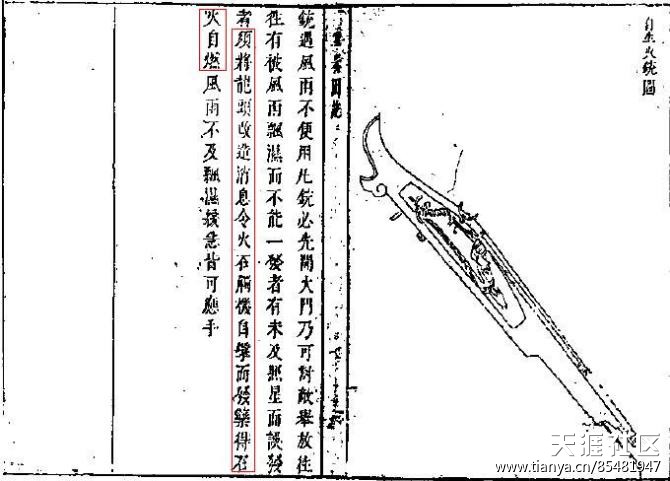 自生火銃圖
銃遇風雨不便用凡銃必先開火門乃可對敵舉放往
往有被風雨飄濕而不能一發者有未及照星而誤發
者須將龍頭改造消息令火石觸機自擊而發藥得石
火自燃風雨不及飄濕緩急皆可應手
天涯社区
www.tianya.cn/85481947